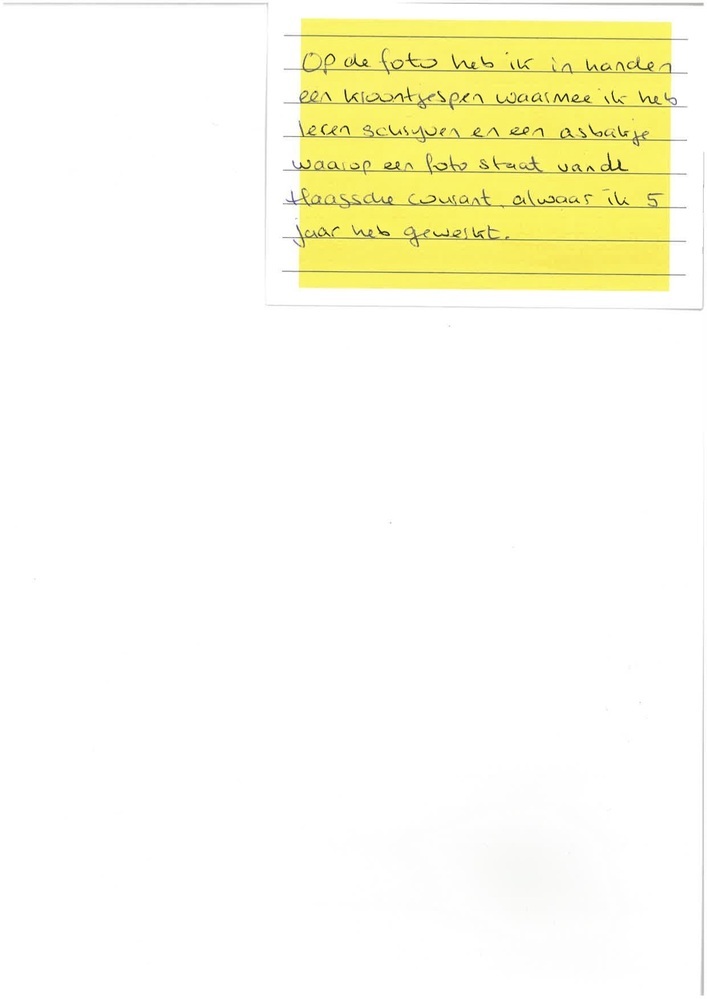 Op de foto heb ik in handen
een kroontjespen waarmee ik heb
leren schrijven en een asbakje
waarop een foto staat van de
Haagsche Courant, alwaar ik 5
jaar heb gewerkt.